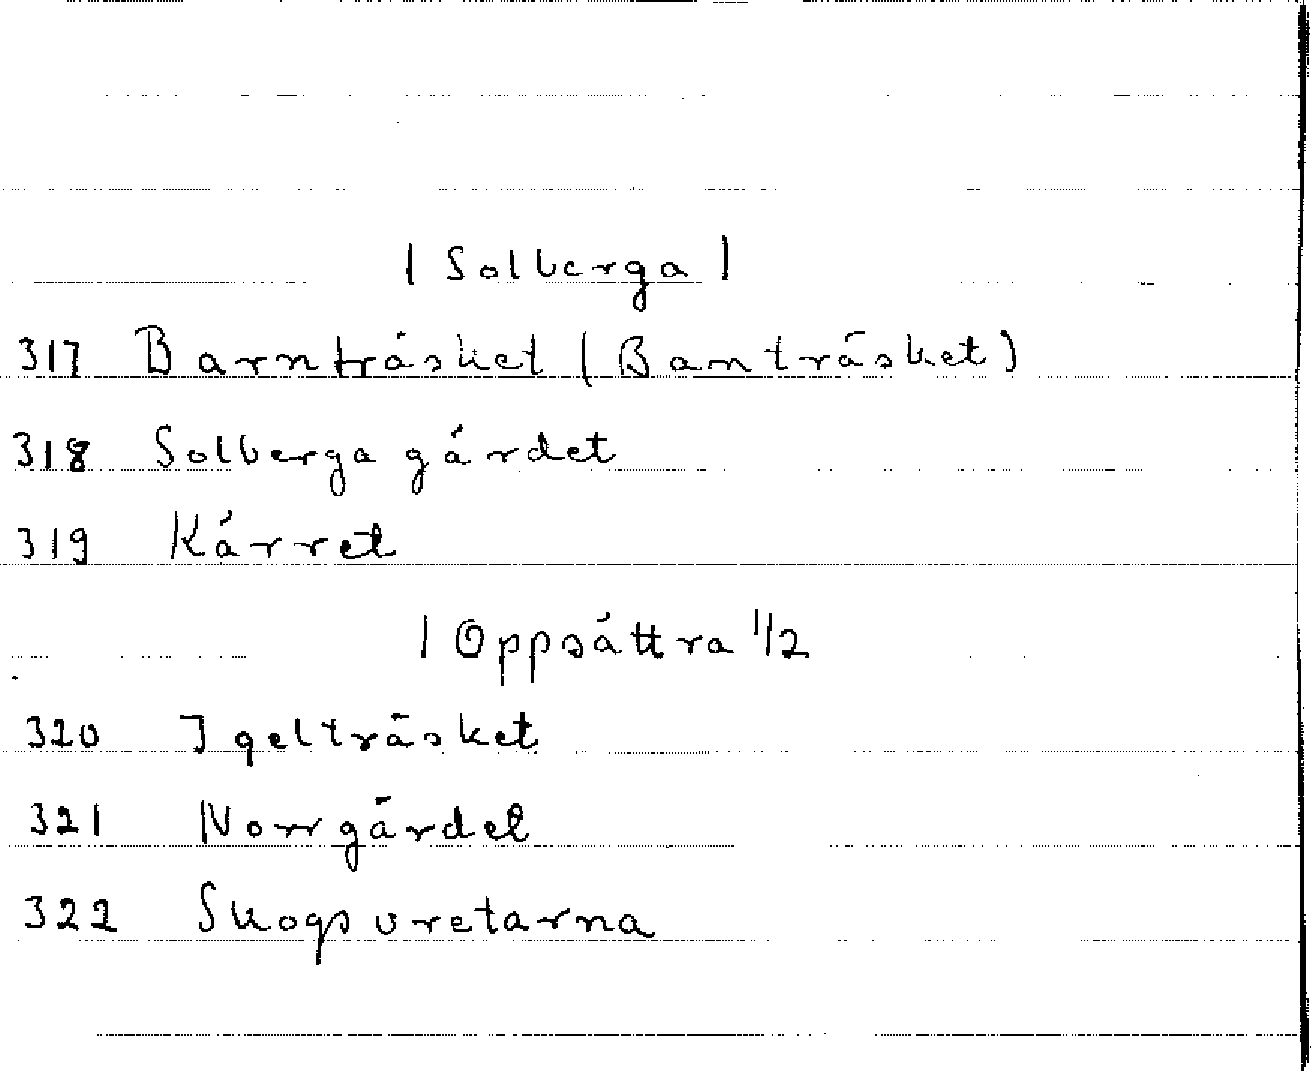 | Solberga |
317 Barnträsket (Banträsket)
318 Solberga gärdet
319 Kärret
| Oppsättra 1/2
320 Igelträsket
321 Norrgärdet
322 Skogsvretarna